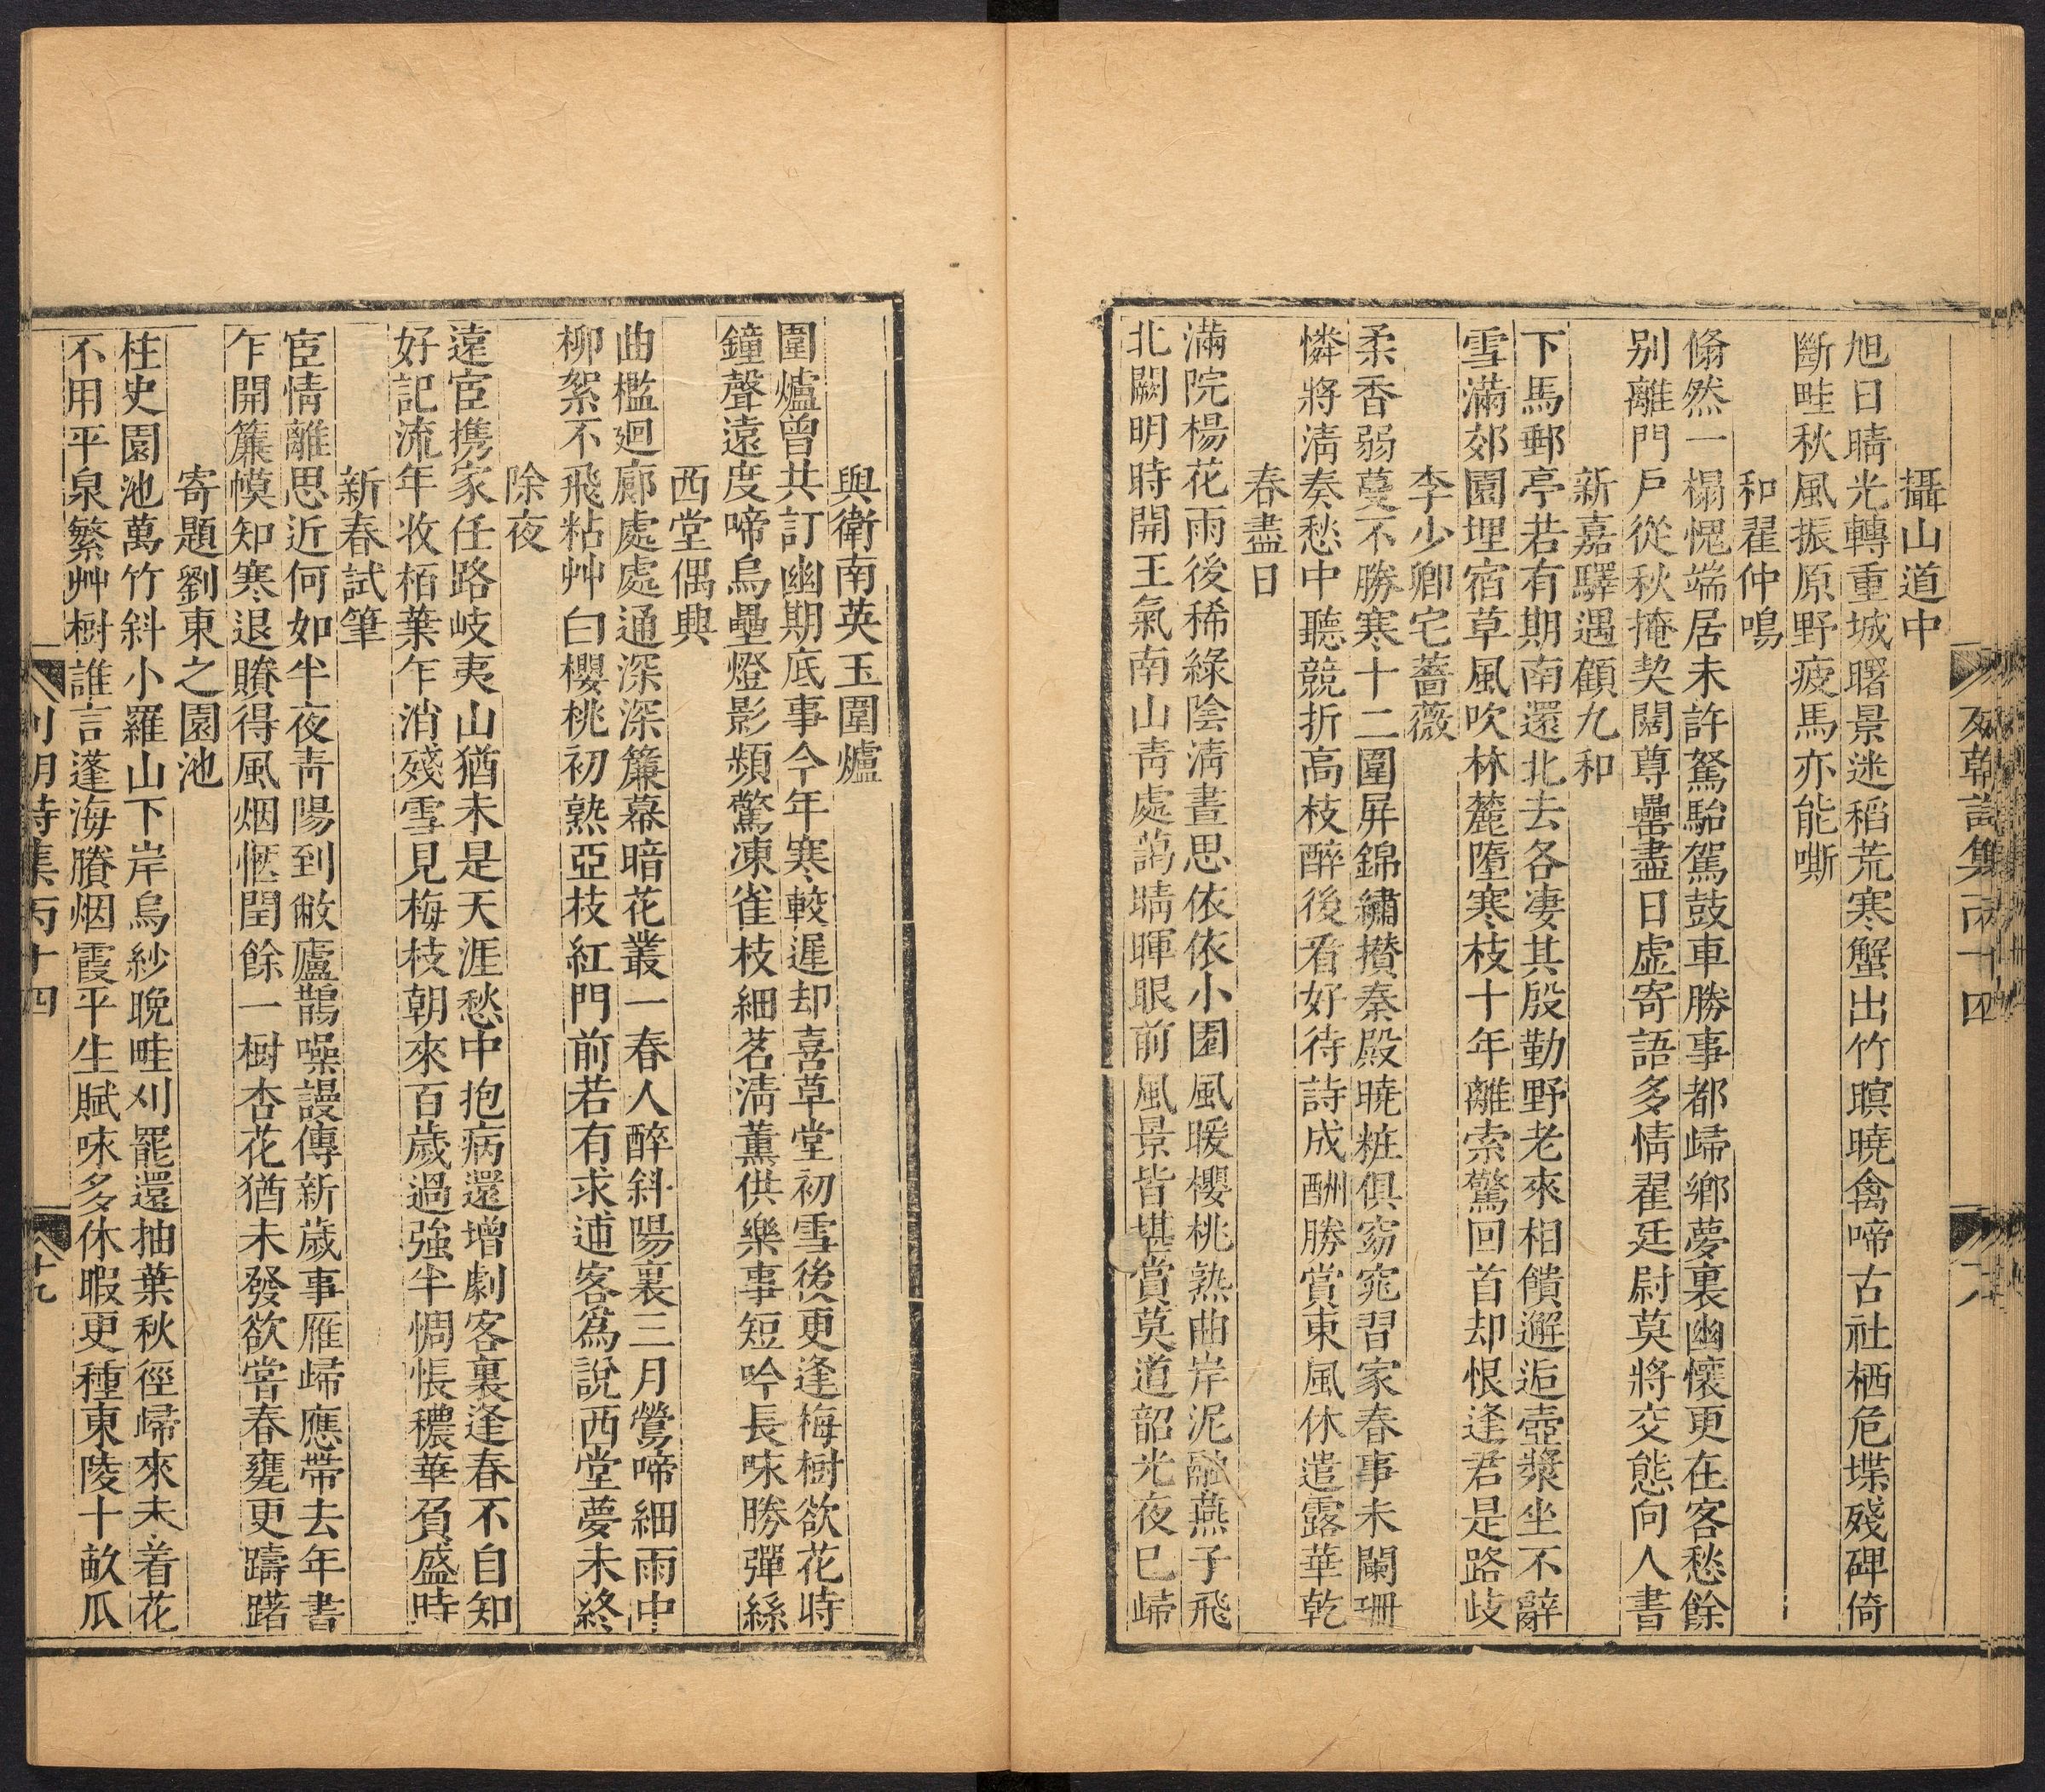 攝山道中
旭日晴光轉重城曙景迷稻荒寒蟹出竹暝曉禽啼古社栖危堞殘碑倚
斷畦秋風振原野疲馬亦能嘶
和翟仲鳴
翛然一榻愧端居未許駑駘駕鼓車勝事都歸鄉夢裏幽懷更在客愁餘
别離門戶從秋掩契闊尊罍盡日虛寄語多情翟廷尉莫將交態向人書
新嘉驛遇顧九和
下馬郵亭若有期南還北去各凄其殷勤野老來相饋邂逅壺漿坐不辭
雪滿郊園埋宿草風吹林麓墮寒枝十年離索驚回首却恨逢君是路歧
李少卿宅薔薇
柔香弱蔓不勝寒十二圍屏錦繡攢秦殿曉粧俱窈窕習家春事未闌珊
憐將淸奏愁中聽競折高枝醉後看好待詩成酬勝賞東風休遣露華乾
春盡日
滿院楊花雨後稀綠陰淸晝思依依小園風暖櫻桃熟曲岸泥融燕子飛
北闕明時開王氣南山靑處藹晴暉眼前風景皆堪賞莫道韶光夜已歸
與衛南英玉圍爐
圍爐曾共訂幽期底事今年寒較遲却喜草堂初雪後更逢梅樹欲花時
鐘聲遠度啼烏壘燈影頻驚凍雀枝細茗淸薰供樂事短吟長味勝彈絲
西堂偶興
曲檻廻廊處處通深深簾幕暗花叢一春人醉斜陽裏三月鶯啼細雨中
柳絮不飛粘艸白櫻桃初熟亞枝紅門前若有求逋客爲說西堂夢未終
除夜
遠宦携家任路岐夷山猶未是天涯愁中抱病還增劇客裏逢春不自知
好記流年收栢葉乍消殘雪見梅枝朝來百歲過强半惆悵穠華負盛時
新春試筆
宦情離思近何如半夜靑陽到敝廬鵲噪謾傳新歲事雁歸應帶去年書
乍開簾幙知寒退賸得風烟恠閏餘一樹杏花猶未發欲嘗春甕更躊躇
寄題劉東之園池
柱史園池萬竹斜小羅山下岸烏紗晩畦刈罷還抽葉秋徑歸來未着花
不用平泉繁艸樹誰言蓬海賸烟霞平生賦味多休暇更種東陵十畝瓜
列朝詩集丙十四
十九